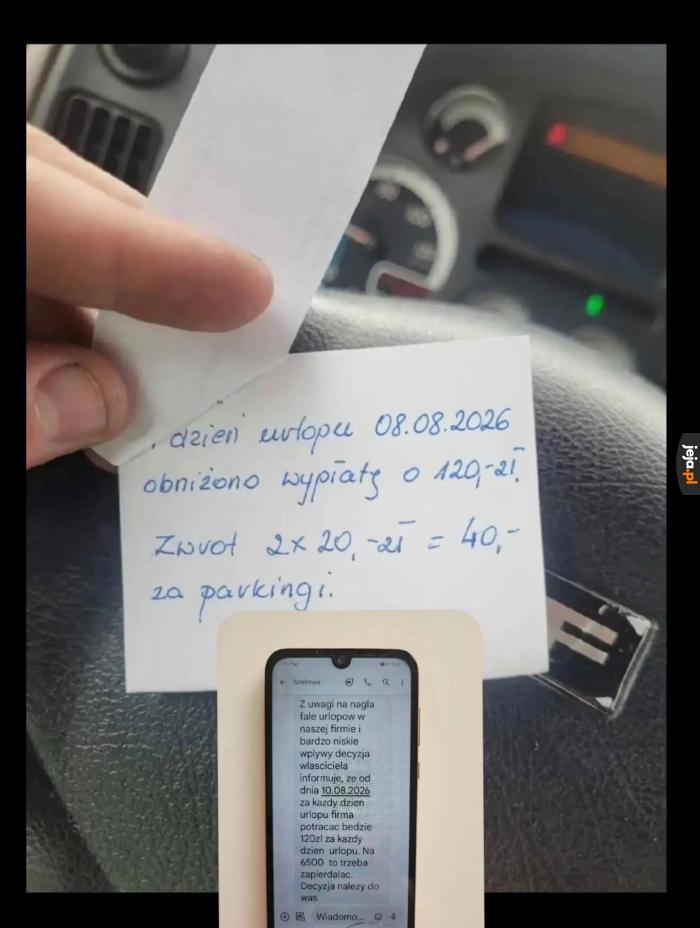 . dzień urlopu 08.08.2026
obniżono wypłatę o 120,-zł.
Zwrot 2x 20,-zł = 40,-
za parkingi.
jeja.pl
Szefowa
Z uwagi na nagla
fale urlopow w
naszej firmie i
bardzo niskie
wplywy decyzja
wlasciciela
informuje, ze od
dnia 10.08.2026
za kazdy dzien
urlopu firma
potracac bedzie
120zl za kazdy
dzien urlopu. Na
6500 to trzeba
zapierdalac.
Decyzja nalezy do
was
Wiadomo...